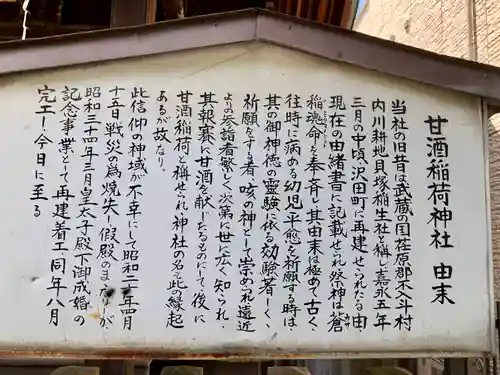 甘酒稲荷神社 由末
当社の旧昔は武蔵の国荏原郡不斗斗村
内川耕地貝塚稲生社と称し嘉永五年
三月の中頃、沢田町に再建せられたる由、
現在の由緒書に記載せられ祭神は蒼
稲魂命を奉斉し其由末は極めて古く、
往時に病める幼児の平癒を祈願する時は
其の御神徳の霊験に依る効験著しく、
祈願をする者、咳の神として崇められ遠近
よりの参詣者繁しく次第に世に広く知られ、
其報賽に甘酒を献じたるものにて、後に
甘酒稲荷と称せられ神社の名も此縁起
あるが故なり、
此信仰の神域が不幸にして昭和二十年四月
十五日戦災の為焼失し仮殿のまゝが
昭和三十四年三月皇太子殿下御成婚の
記念事業として再建着工、同年八月
完工し今日に至る